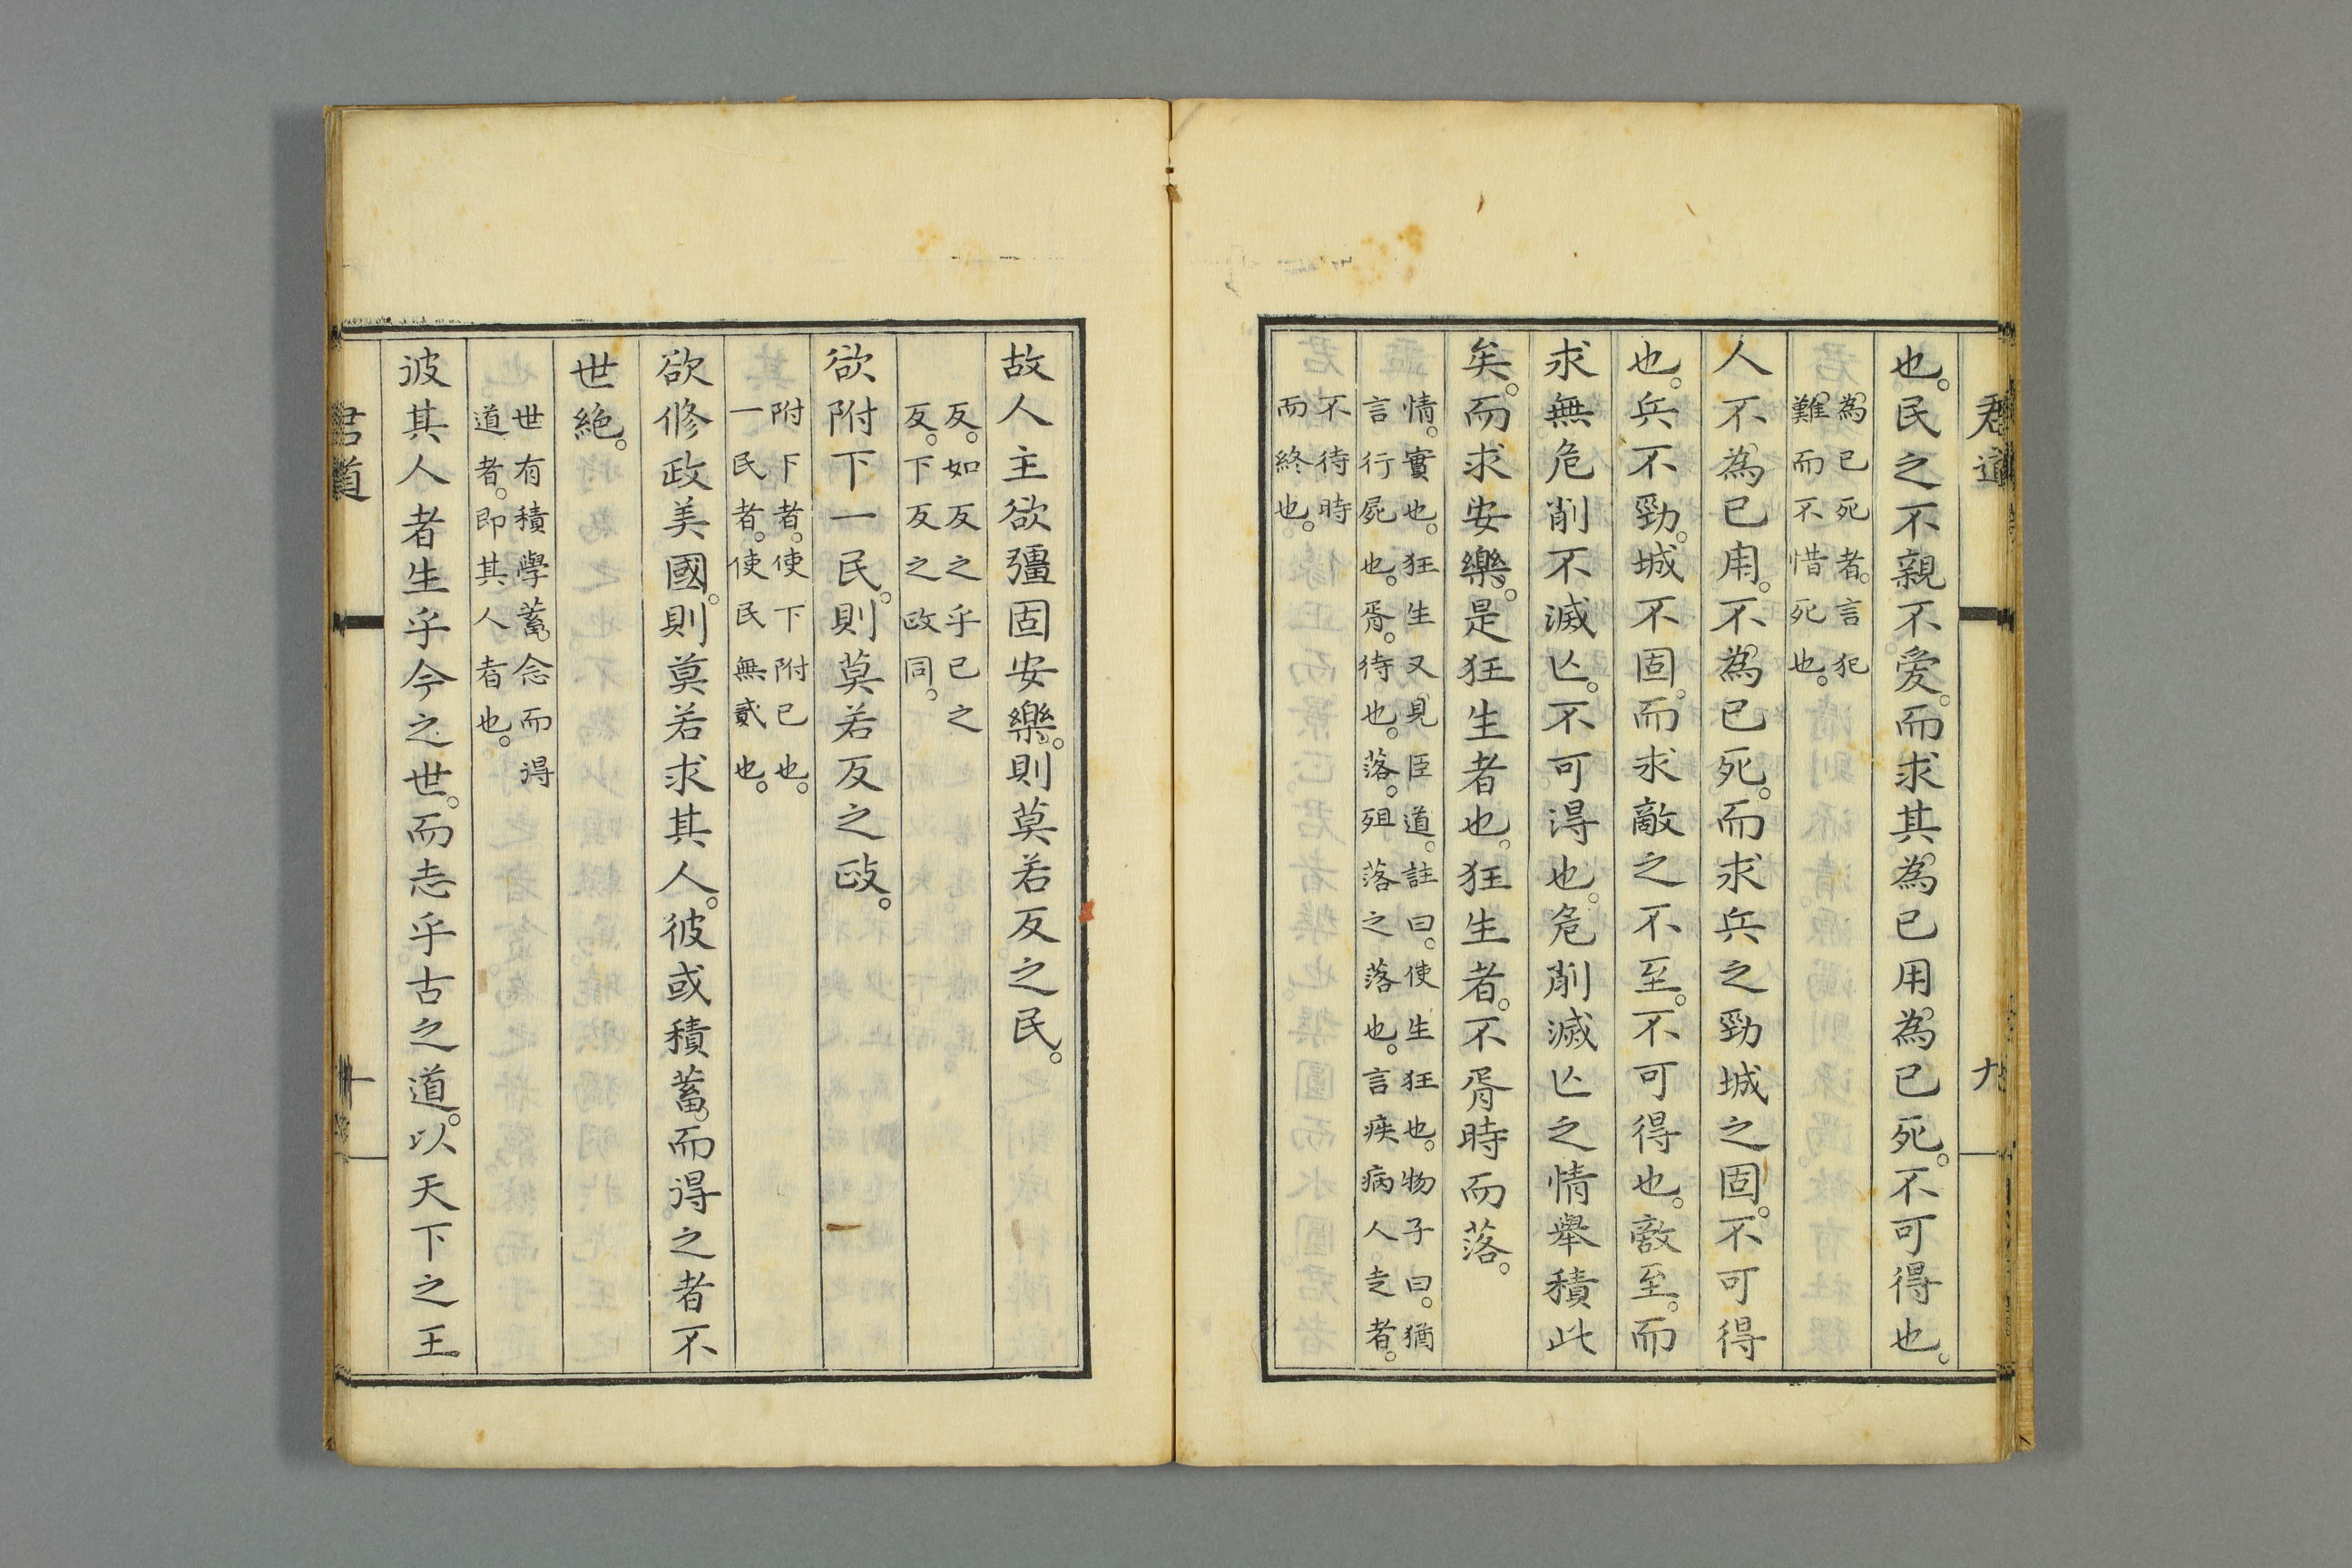 君道
九
也。民之不親不愛。而求其為已用。為已死。不可得也。
為已死者。言犯
難。而不惜死也。
人不為已用。不為已死。而求兵之勁城之固。不可得
也。兵不勁。城不固。而求敵之不至。不可得也。敵至。而
求無危削不滅亾。不可得也。危削滅亾之情舉積此
矣。而求安樂。是狂生者也。狂生者。不胥時而落。
情。實也。狂生又見臣道。註曰。使生狂也。物子曰。猶
言行屍也。胥。待也。落。殂落之落也。言疾病人走者。
不待時
而終也。
故人主欲彊固安樂。則莫若反之民。
反。如反之乎已之
反。下反之政同。
欲附下一民。則莫若反之政。
附下者。使下附已也。
一民者。使民無貳也。
欲修政美國。則莫若求其人。彼或積蓄。而得之者不
世絶。
世有積學蓄。念而得
道者。即其人者也。
彼其人者生乎今之世。而志乎古之道。以天下之王
君道
十